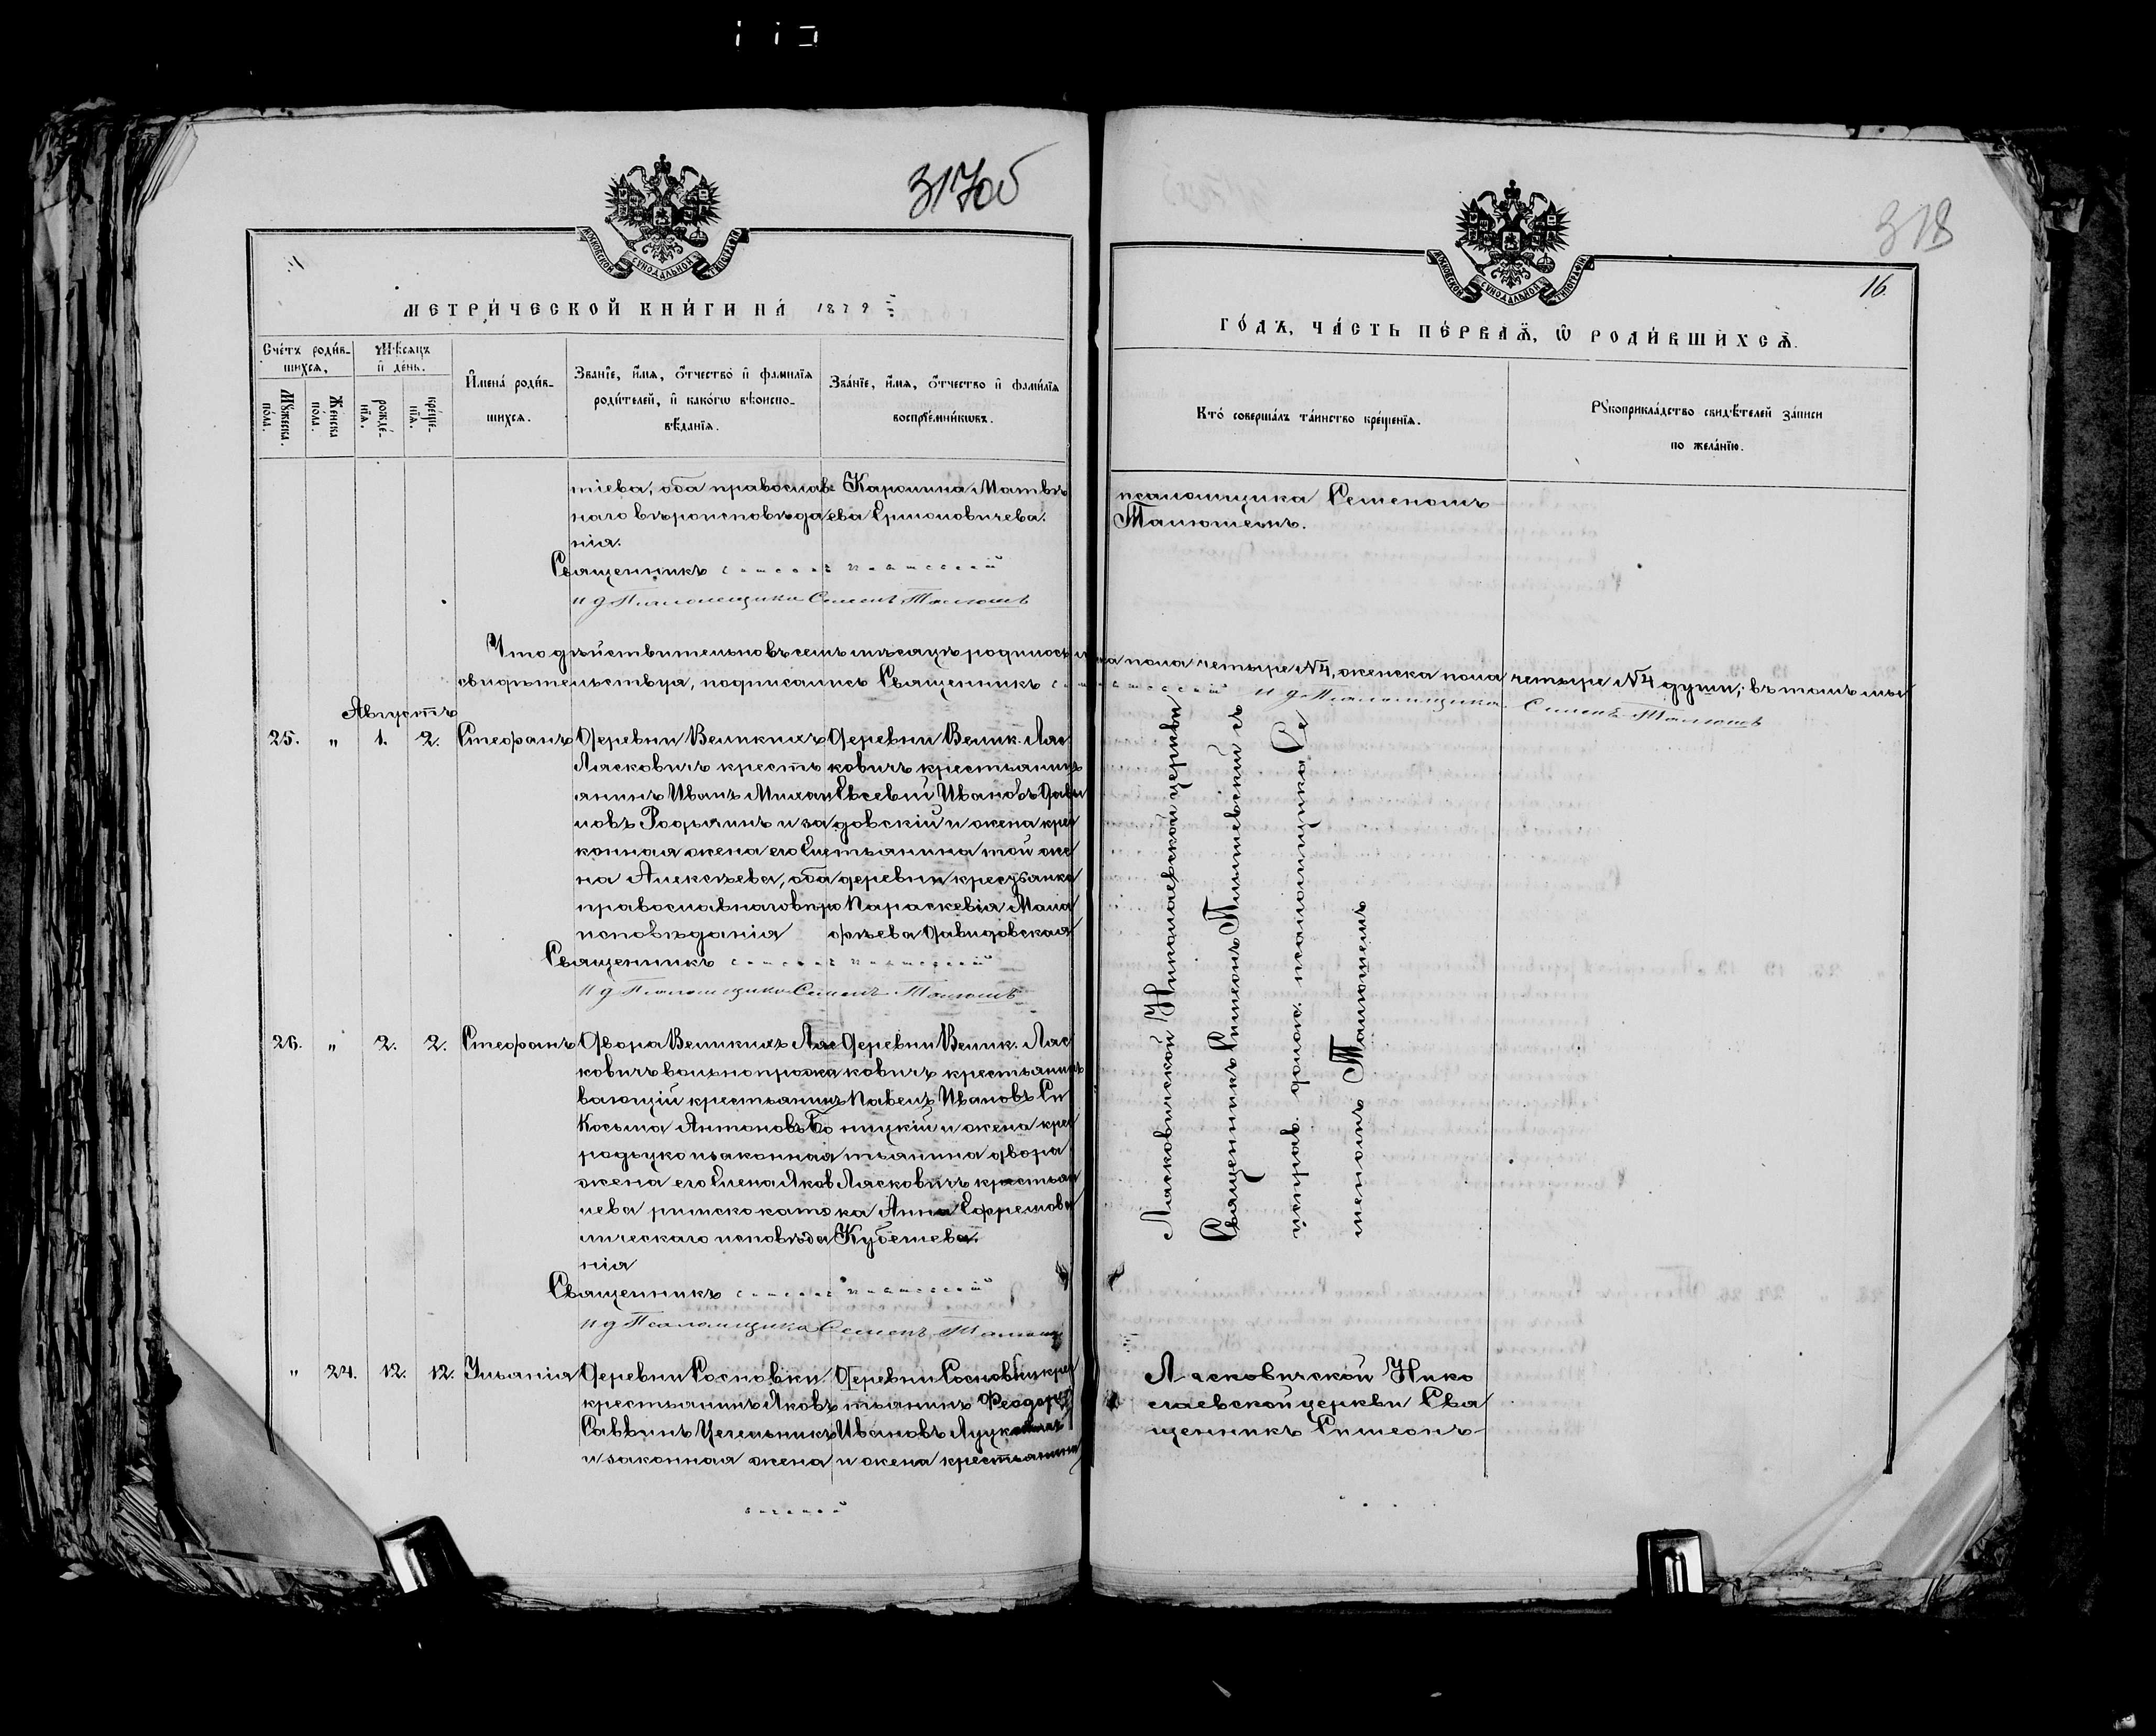 317об
318
16.
МЕТРИЧЕСКОЙ КНИГИ НА 1879
ГОДЪ, ЧАСТЬ ПЕРВАЯ, Ѡ РОДИВШИХСЯ.
Счетъ родив-
шихся,
Мѣсяцъ
и день.
Мꙋжеска
пола.
Женска
пола.
рожде-
нїя.
креще-
нїя.
Имена родив-
шихся.
Званїе, имя, ѻтчество и фамилїя
родителей, и какогѡ вѣроиспо-
вѣданїя.
Званїе, имя, ѻтчество и фамилїя
воспрїемникѡвъ.
Кто совершалъ таинство крещенїя.
Рꙋкоприкладство свидѣтелей записи
по желанїю.
тіева, оба православ
наго вѣроисповѣда
нія.
Каролина Матвѣ
ева Ермоловичева.
псаломщика Семеномъ
Талюшемъ.
Священникъ
И д Псаломщика Семенъ Талюшъ
Что дѣйствительно въ семъ мѣсяцѣ родилось пола четыре №4, женска пола четыре №4 души; въ томъ
свидѣтельствуя, подписались Священникъ И д Псаломщика Семенъ Талюшъ
Августъ
25. „ 1. 2. Стефанъ
Деревни Великихъ
Ласковичъ кресть
янинъ Иванъ Михаи
ловъ и за
конная жена его Еле
на Алексѣева, оба
православнаго вѣро
исповѣданія
Деревни Велик. Лас
ковичъ крестьянинъ
Евсевій Ивановъ Дави
довскій и жена крес
тьянина той же
деревни крестьянка
Параскевія Мала
фѣева Давидовская
Ласковичской Николаевской церкви
Священникъ Симеонъ съ
исправ. долж. псаломщика Се
меномъ Талюшемъ
Священникъ
И д Псаломщика Семенъ Талюшъ
26. „ 2. 2. Стефанъ
Двора Великихъ Лас
ковичъ вольнопрожи
вающій крестьянинъ
Косьма Антоновъ Бо
родзуко и законная
жена его Елена Яков
лева римскокато
лическаго исповѣда
нія
Деревни Велик. Лас
ковичъ крестьянинъ
Павелъ Ивановъ Си
ницкій и жена крес
тьянина двора
Ласковичъ крестьян
ка Анна Ефремова
Кубешева.
Священникъ
И д Псаломщика Семенъ Талюшъ
„ 24. 12. 12. Уліанія
Деревни Сосновки
крестьянинъ Яковъ
Саввинъ
и законная жена
Деревни Сосновки крес
тьянинъ Феодоръ
Ивановъ
и жена крестьянина
Ласковичской Нико
лаевской церкви Свя
щенникъ Симеонъ